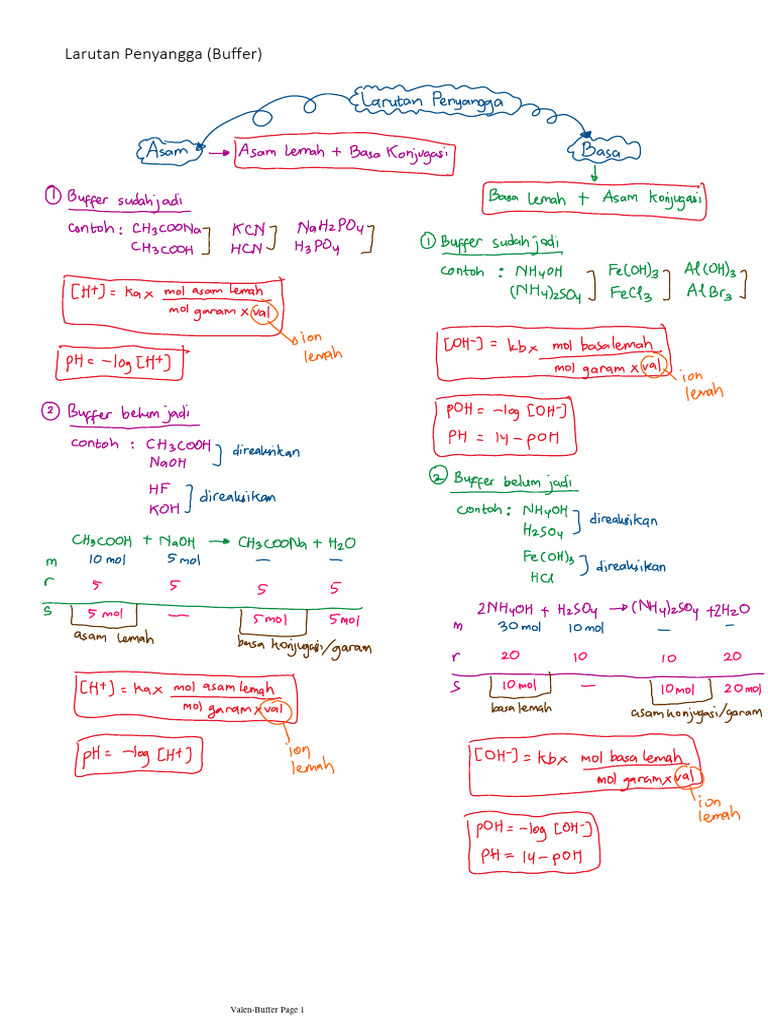 Larutan Penyangga (Buffer)
Larutan Penyangga
Asam → Asam Lemah + Basa Konjugasi
① Buffer sudah jadi
contoh : CH3COONa ] KCN ] NaH2PO4 ]
CH3COOH HCN H3PO4
[H+] = ka x mol asam lemah
mol garam x val
ion
lemah
pH = -log [H+]
② Buffer belum jadi
contoh : CH3COOH ] direaksikan
NaOH
HF ] direaksikan
KOH
CH3COOH + NaOH → CH3COONa + H2O
m 10 mol 5 mol — —
r 5 5 5 5
s 5 mol — 5 mol 5 mol
asam lemah basa konjugasi/garam
[H+] = ka x mol asam lemah
mol garam x val
ion
lemah
pH = -log [H+]
Basa
Basa lemah + Asam Konjugasi
① Buffer sudah jadi
contoh : NH4OH ] Fe(OH)3 ] Al(OH)3 ]
(NH4)2SO4 FeCl3 AlBr3
[OH-] = kb x mol basa lemah
mol garam x val
ion
lemah
pOH = -log [OH-]
PH = 14 - pOH
② Buffer belum jadi
contoh : NH4OH ] direaksikan
H2SO4
Fe(OH)3 ] direaksikan
HCl
2NH4OH + H2SO4 → (NH4)2SO4 + 2H2O
m 30 mol 10 mol — —
r 20 10 10 20
s 10 mol — 10 mol 20 mol
basa lemah asam konjugasi/garam
[OH-] = kb x mol basa lemah
mol garam x val
ion
lemah
pOH = -log [OH-]
PH = 14 - pOH
Valen-Buffer Page 1